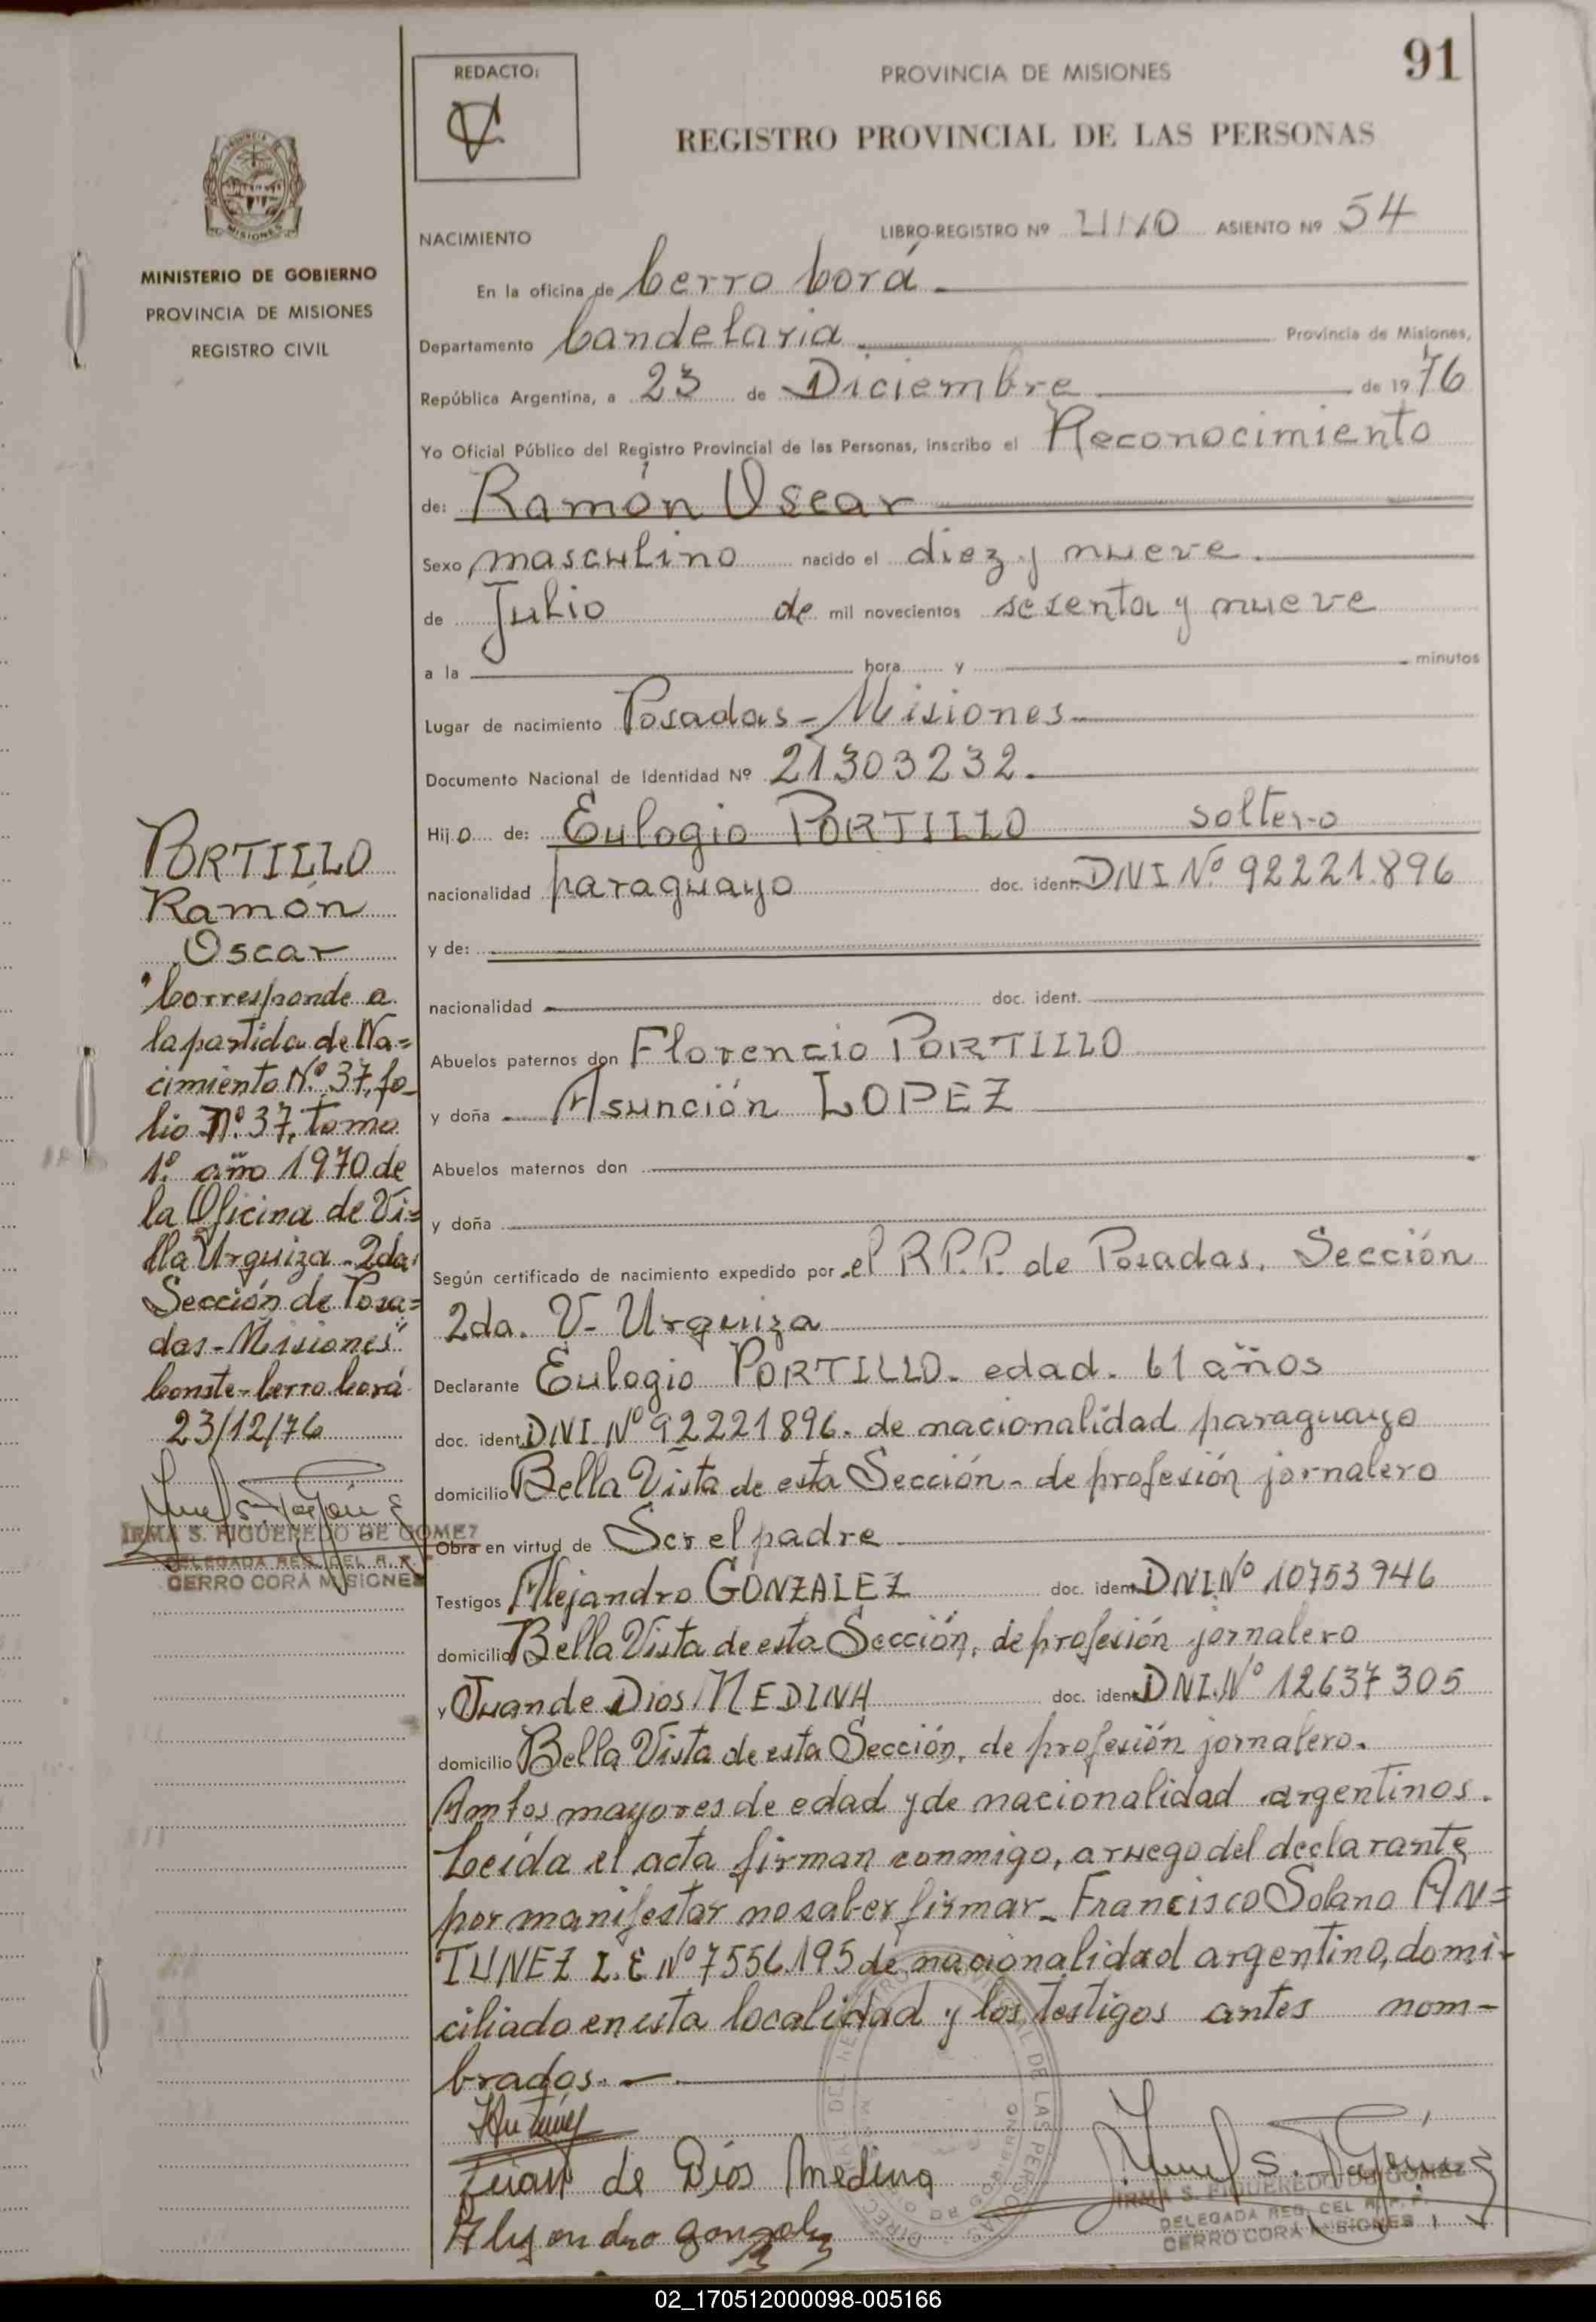 91
REDACTO:
PROVINCIA DE MISIONES
REGISTRO PROVINCIAL DE LAS PERSONAS
MISIONES
MINISTERIO DE GOBIERNO
PROVINCIA DE MISIONES
REGISTRO CIVIL
NACIMIENTO LIBRO-REGISTRO Nº ASIENTO Nº 54
En la oficina de Cerro Corá
Departamento Candelaria Provincia de Misiones,
República Argentina, a 23 de Diciembre de 1976
Yo Oficial Público del Registro Provincial de las Personas, inscribo el Reconocimiento
de: Ramón Oscar
Sexo masculino nacido el diez y nueve
de Julio de mil novecientos sesenta y nueve
a la hora y minutos
Lugar de nacimiento Posadas - Misiones
Documento Nacional de Identidad Nº 21303232.
Hijo de: Eulogio PORTILLO soltero
nacionalidad paraguayo doc. ident. DNI Nº 92221.896
y de:
nacionalidad doc. ident.
Abuelos paternos don Florencio PORTILLO
y doña Asunción LOPEZ
Abuelos maternos don
y doña
Según certificado de nacimiento expedido por el R.P.P. de Posadas. Sección
2da. V- Urquiza
Declarante Eulogio PORTILLO. edad. 61 años
doc. ident. DNI Nº 92221896. de nacionalidad paraguayo
domicilio Bella Vista de esta Sección - de profesión jornalero
Obra en virtud de Ser el padre
Testigos Alejandro GONZALEZ doc. ident. DNI Nº 10753946
domicilio Bella Vista de esta Sección, de profesión jornalero
y Juan de Dios MEDINA doc. ident. DNI. Nº 12637305
domicilio Bella Vista de esta Sección, de profesión jornalero.
Ambos mayores de edad y de nacionalidad argentinos.
Leída el acta firman conmigo, a ruego del declarante
por manifestar no saber firmar - Francisco Solano AN=
TUNEZ L.E Nº 7556.195 de nacionalidad argentino, domi-
ciliado en esta localidad y los testigos antes nom-
brados. -
Juan de Dios Medina
Alejandro Gonzalez
IRMA S. FIGUEREDO DE GOMEZ
DELEGADA REG. DEL R. P. P.
CERRO CORA MISIONES
PORTILLO
Ramón
Oscar
"Corresponde a
la partida de Na=
cimiento Nº 37, fo-
lio Nº. 37, tomo
1º. año 1970 de
la Oficina de Vi=
lla Urquiza - 2da.
Sección de Posa=
das - Misiones"
Conste - Cerro Corá
23/12/76
IRMA S. FIGUEREDO DE GOMEZ
DELEGADA REG. DEL R. P.
CERRO CORA MISIONES
02_170512000098-005166